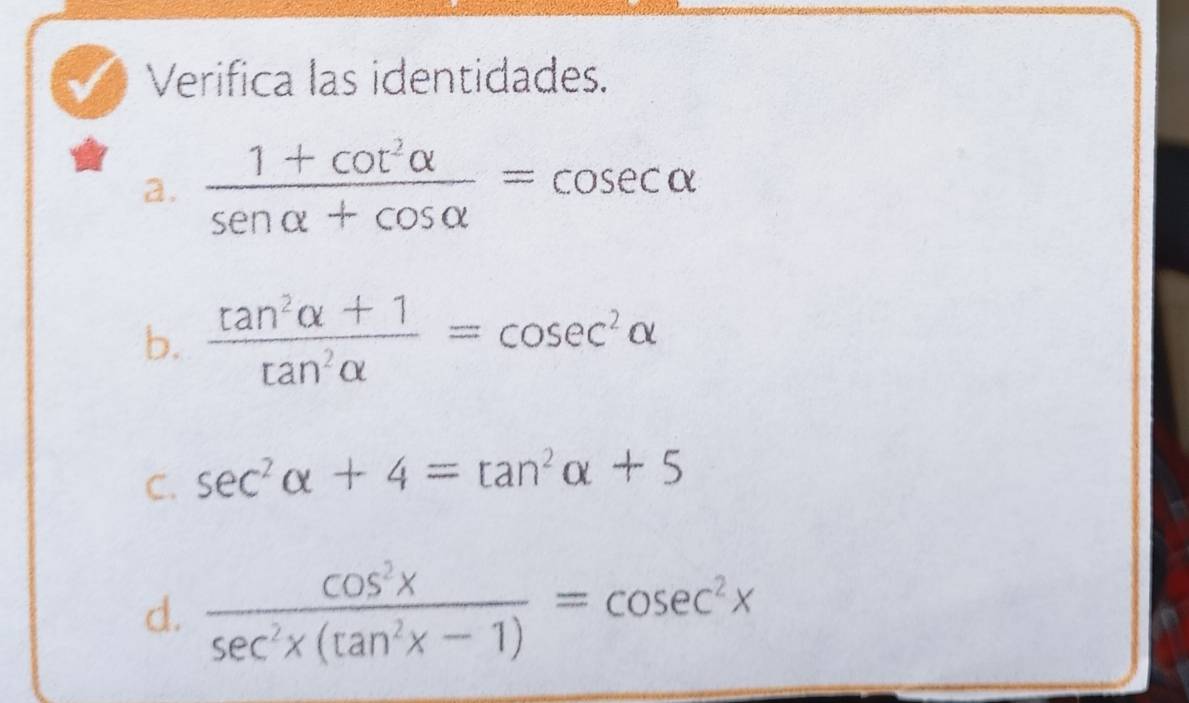 Verifica las identidades.
a. \frac{1 + cot²α}{sen α + cos α} = cosec α
b. \frac{tan²α + 1}{tan²α} = cosec²α
c. sec²α + 4 = tan²α + 5
d. \frac{cos²x}{sec²x (tan²x − 1)} = cosec²x